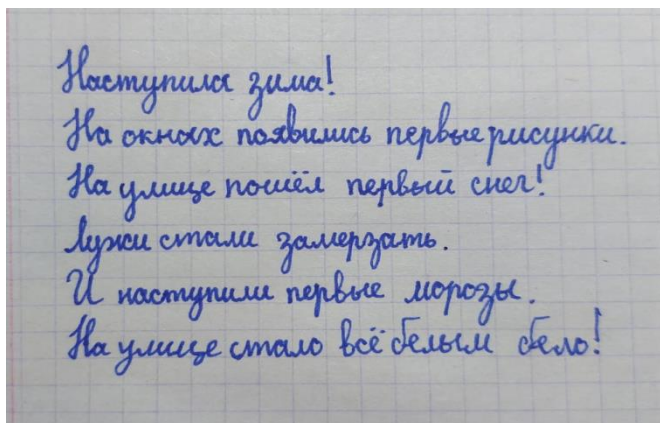 Наступила зима!
На окнах появились первые рисунки.
На улице пошёл первый снег!
Лужи стали замерзать.
И наступили первые морозы.
На улице стало всё белым бело!